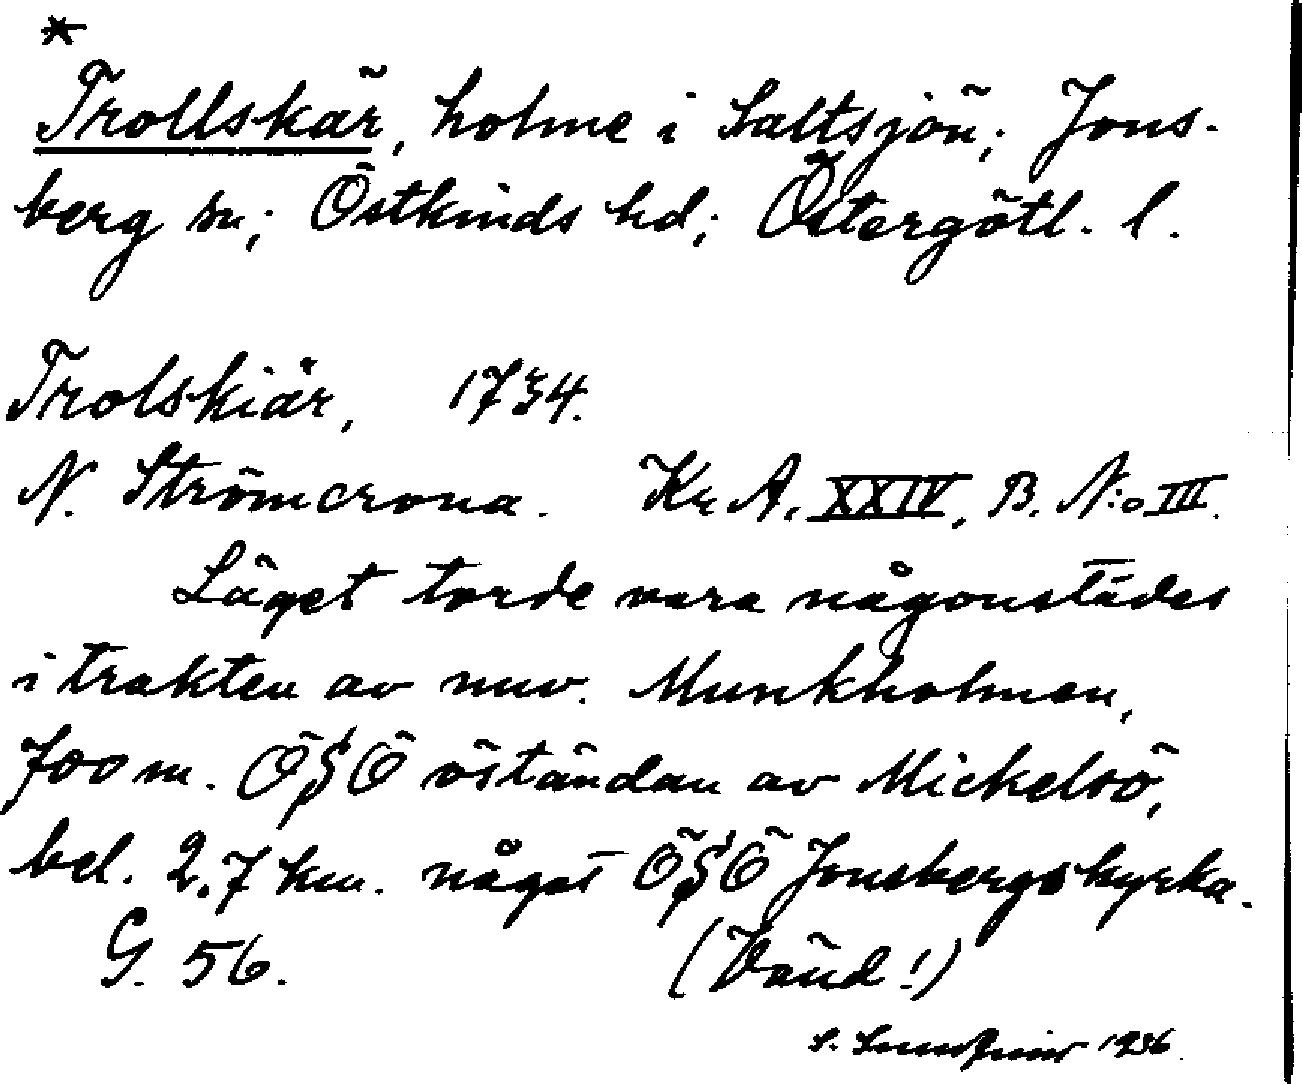 *
Trollskär, holme i Saltsjön; Jons-
berg sn; Östkinds hd; Östergötl. l.
Trolskiär, 1734.
N. Strömcrona. Kr A. XXIV, B. N:o III.
Läget torde vara någonstädes
i trakten av nuv. Munkholmen,
700 m. ÖSÖ öständan av Mickelsö,
bel. 2.7 km. något ÖSÖ Jonsbergs kyrka.
G. 56.
(Vänd!)
S. 1936.